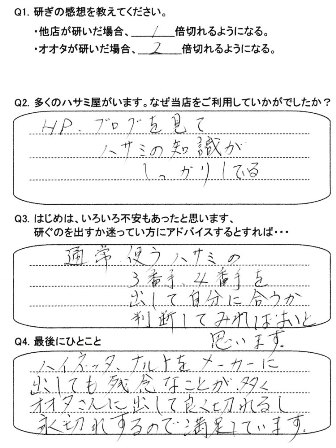 Q1. 研ぎの感想を教えてください。
・他店が研いだ場合、 1 倍切れるようになる。
・オオタが研いだ場合、 2 倍切れるようになる。
Q2. 多くのハサミ屋がいます。なぜ当店をご利用していかがでしたか？
HP. ブログを見て
ハサミの知識が
しっかりしてる
Q3. はじめは、いろいろ不安もあったと思います、
研ぐのを出すか迷ってい方にアドバイスするとすれば・・・
通常使うハサミの
3番手、4番手を
出して自分に合うか
判断してみればよいと
思います。
Q4. 最後にひとこと
ハイネッタ ナルトをメーカーに
出しても残念なことが多く
オオタさんに出して良く切れるし
永切れするので満足しています。